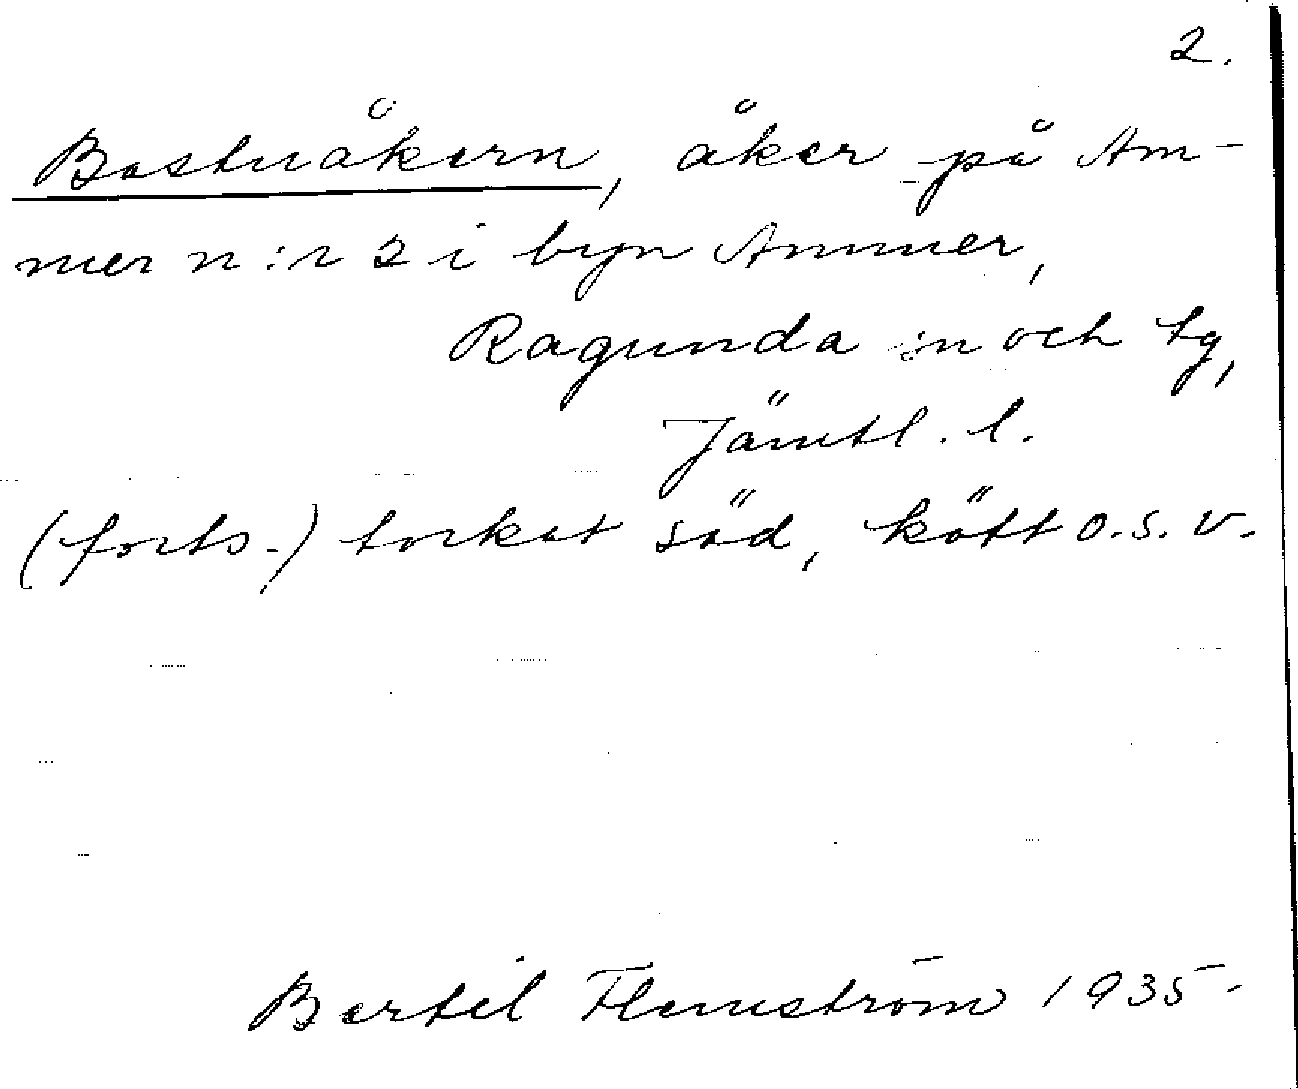 2.
Bastuåkern, åker på Am-
mer n:r 2 i byn Ammer,
Ragunda sn och tg,
Jämtl. l.
(forts.) torkat säd, kött o.s.v.
Bertil Flemström 1935.